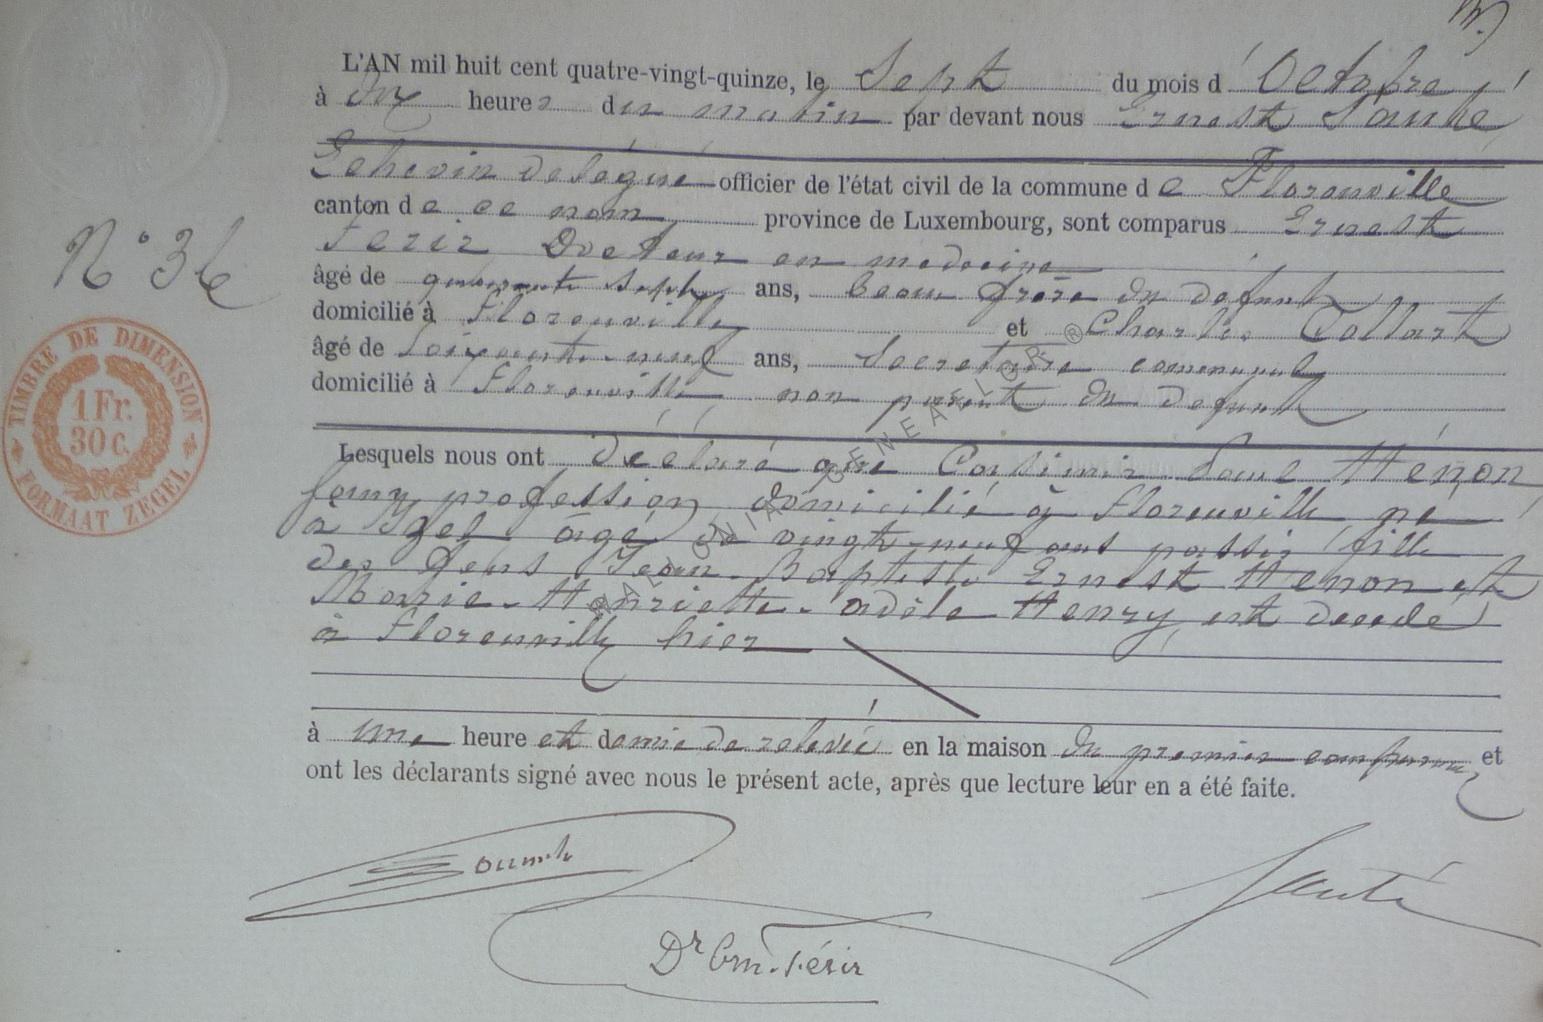 L'AN mil huit cent quatre-vingt-quinze, le Sept du mois d'Octobre
à dix heures du matin par devant nous Ernest Santé
Echevin délégué officier de l'état civil de la commune de Florenville
canton de ce nom province de Luxembourg, sont comparus Ernest
Férir Docteur en medecine
âgé de quarante sept ans, beau frère du defunt
domicilié à Florenville et Charles Collart
âgé de soixante-neuf ans, Secretaire communal
domicilié à Florenville non parent du defunt
Lesquels nous ont déclaré que Casimir Paul Hénon
sans profession domicilié à Florenville né
à Izel agé de vingt-neuf ans passés, fils
des feus Jean-Baptiste Ernest Henon et
Marie-Henriette-adèle Henry est decedé
à Florenville hier
à une heure et demie de relevée en la maison du premier comparant et
ont les déclarants signé avec nous le présent acte, après que lecture leur en a été faite.
N° 36
TIMBRE DE DIMENSION
1 Fr.
30 c.
FORMAAT ZEGEL
GENEALOR ®
Santé
Dr Férir